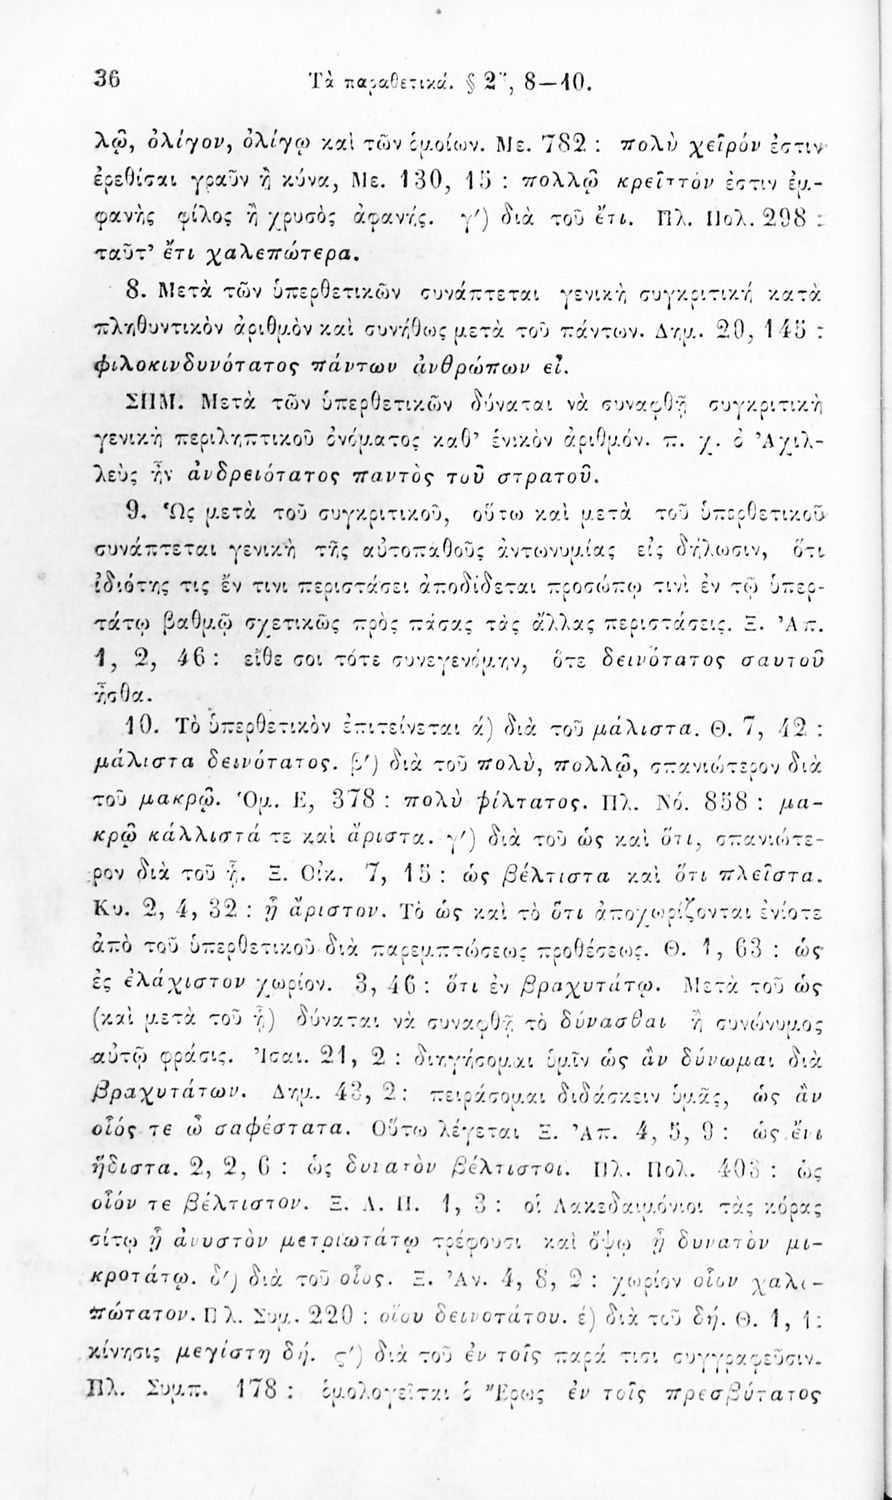 36 Τὰ παραθετικά. § 2", 8—10.
λῷ, ὀλίγον, ὀλίγῳ καὶ τῶν ὁμοίων. Με. 782 : πολὺ χεῖρόν ἐστιν
ἐρεθίσαι γραῦν ἢ κύνα, Με. 130, 15 : πολλῷ κρεῖττόν ἐστιν ἐμ-
φανὴς φίλος ἢ χρυσὸς ἀφανής. γ′) διὰ τοῦ ἔτι. Πλ. Πολ. 298 :
ταῦτ’ ἔτι χαλεπώτερα.
8. Μετὰ τῶν ὑπερθετικῶν συνάπτεται γενικὴ συγκριτικὴ κατὰ
πληθυντικὸν ἀριθμὸν καὶ συνήθως μετὰ τοῦ πάντων. Δημ. 20, 145 :
φιλοκινδυνότατος πάντων ἀνθρώπων εἶ.
ΣΗΜ. Μετὰ τῶν ὑπερθετικῶν δύναται νὰ συναφθῇ συγκριτικὴ
γενικὴ περιληπτικοῦ ὀνόματος καθ’ ἑνικὸν ἀριθμόν. π. χ. ὁ Ἀχιλ-
λεὺς ἦν ἀνδρειότατος παντὸς τοῦ στρατοῦ.
9. Ὡς μετὰ τοῦ συγκριτικοῦ, οὕτω καὶ μετὰ τοῦ ὑπερθετικοῦ
συνάπτεται γενικὴ τῆς αὐτοπαθοῦς ἀντωνυμίας εἰς δήλωσιν, ὅτι
ἰδιότης τις ἔν τινι περιστάσει ἀποδίδεται προσώπῳ τινὶ ἐν τῷ ὑπερ-
τάτῳ βαθμῷ σχετικῶς πρὸς πάσας τὰς ἄλλας περιστάσεις. Ξ. Ἀπ.
1, 2, 46 : εἴθε σοι τότε συνεγενόμην, ὅτε δεινότατος σαυτοῦ
ἦσθα.
10. Τὸ ὑπερθετικὸν ἐπιτείνεται ά) διὰ τοῦ μάλιστα. Θ. 7, 42 :
μάλιστα δεινότατος. β′) διὰ τοῦ πολὺ, πολλῷ, σπανιώτερον διὰ
τοῦ μακρῷ. Ὁμ. Ε, 378 : πολὺ φίλτατος. Πλ. Νό. 858 : μα-
κρῷ κάλλιστά τε καὶ ἄριστα. γ′) διὰ τοῦ ὡς καὶ ὅτι, σπανιώτε-
ρον διὰ τοῦ ᾗ. Ξ. Οἰκ. 7, 15 : ὡς βέλτιστα καὶ ὅτι πλεῖστα.
Κυ. 2, 4, 32 : ᾗ ἄριστον. Τὸ ὡς καὶ τὸ ὅτι ἀποχωρίζονται ἐνίοτε
ἀπὸ τοῦ ὑπερθετικοῦ διὰ παρεμπτώσεως προθέσεως. Θ. 1, 63 : ὡς
ἐς ἐλάχιστον χωρίον. 3, 46 : ὅτι ἐν βραχυτάτῳ. Μετὰ τοῦ ὡς
(καὶ μετὰ τοῦ ᾗ) δύναται νὰ συναφθῇ τὸ δύνασθαι ἢ συνώνυμος
αὐτῷ φράσις. Ἰσαι. 21, 2 : διηγήσομαι ὑμῖν ὡς ἂν δύνωμαι διὰ
βραχυτάτων. Δημ. 43, 2 : πειράσομαι διδάσκειν ὑμᾶς, ὡς ἂν
οἷός τε ὦ σαφέστατα. Οὕτω λέγεται Ξ. Ἀπ. 4, 5, 9 : ὡς ἔνι
ἥδιστα. 2, 2, 6 : ὡς δυνατὸν βέλτιστοι. Πλ. Πολ. 403 : ὡς
οἷόν τε βέλτιστον. Ξ. Λ. Π. 1, 3 : οἱ Λακεδαιμόνιοι τὰς κόρας
σίτῳ ᾗ ἀνυστὸν μετριωτάτῳ τρέφουσι καὶ ὄψῳ ᾗ δυνατὸν μι-
κροτάτῳ. δ′) διὰ τοῦ οἷος. Ξ. Ἀν. 4, 8, 2 : χωρίον οἷον χαλε-
πώτατον. Πλ. Συμ. 220 : οἵου δεινοτάτου. έ) διὰ τοῦ δή. Θ. 1, 1 :
κίνησις μεγίστη δή. ϛ′) διὰ τοῦ ἐν τοῖς παρά τισι συγγραφεῦσιν.
Πλ. Συμπ. 178 : ὁμολογεῖται ὁ Ἔρως ἐν τοῖς πρεσβύτατος